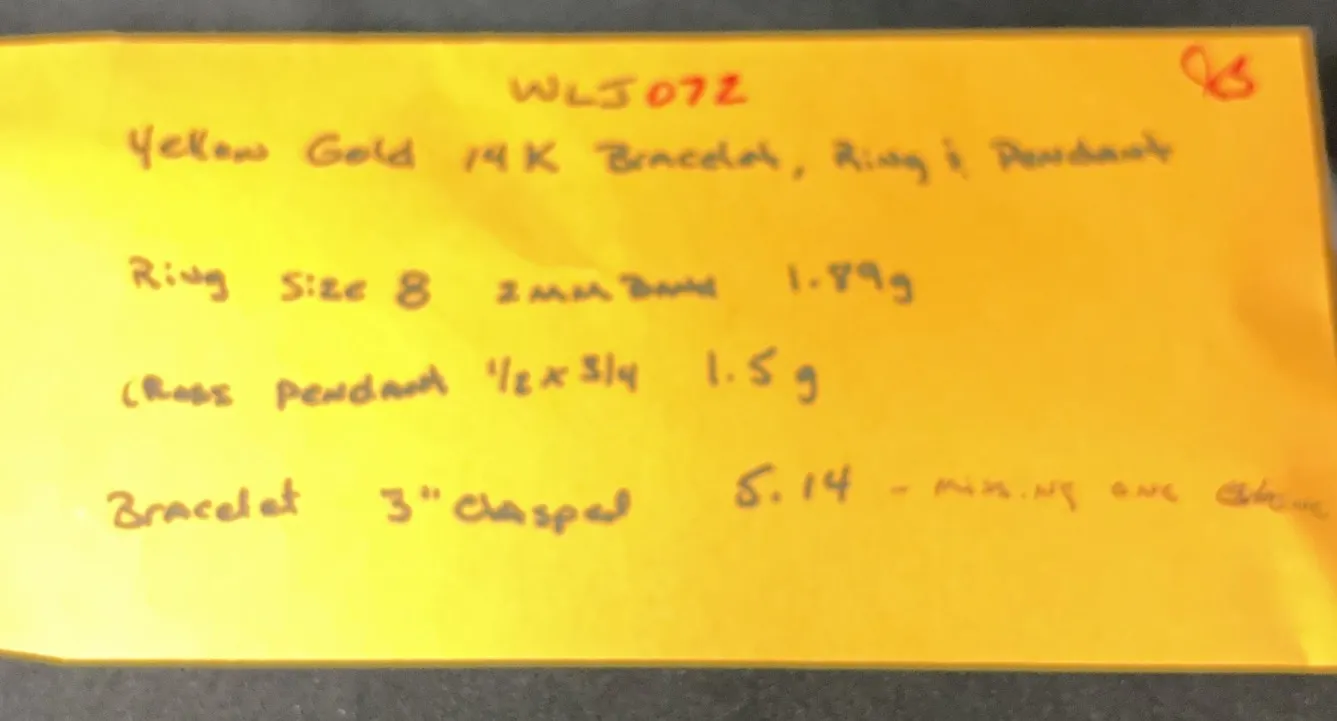 WLJ072
Yellow Gold 14K Bracelet, Ring & Pendant
Ring Size 8 2mm Band 1.89g
Cross Pendant 1/2 x 3/4 1.5g
Bracelet 3" Clasped 5.14 - missing one